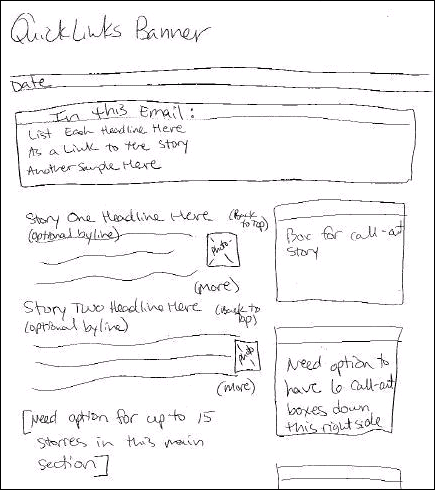 QuickLinks Banner
Date
In this Email:
List Each Headline Here
As a Link to the Story
Another Sample Here
Story One Headline Here (Back to Top)
(optional byline)
photo
(more)
Story Two Headline Here (Back to Top)
(optional byline)
photo
(more)
[Need option for up to 15
stories in this main
section]
Box for call-out
story
Need option to
have 6 call-out
boxes down
this right side